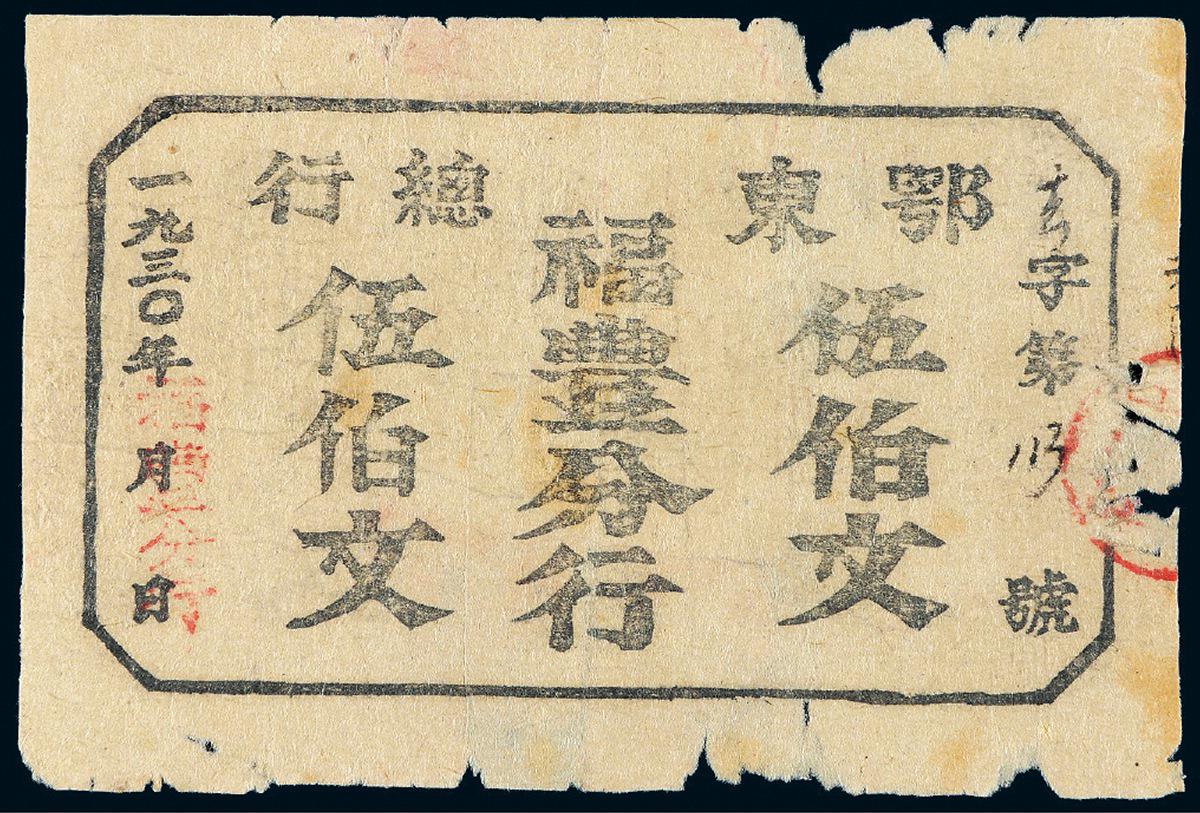 鄂東總行
字第113號
伍伯文
福豐分行
伍伯文
一九三〇年月日